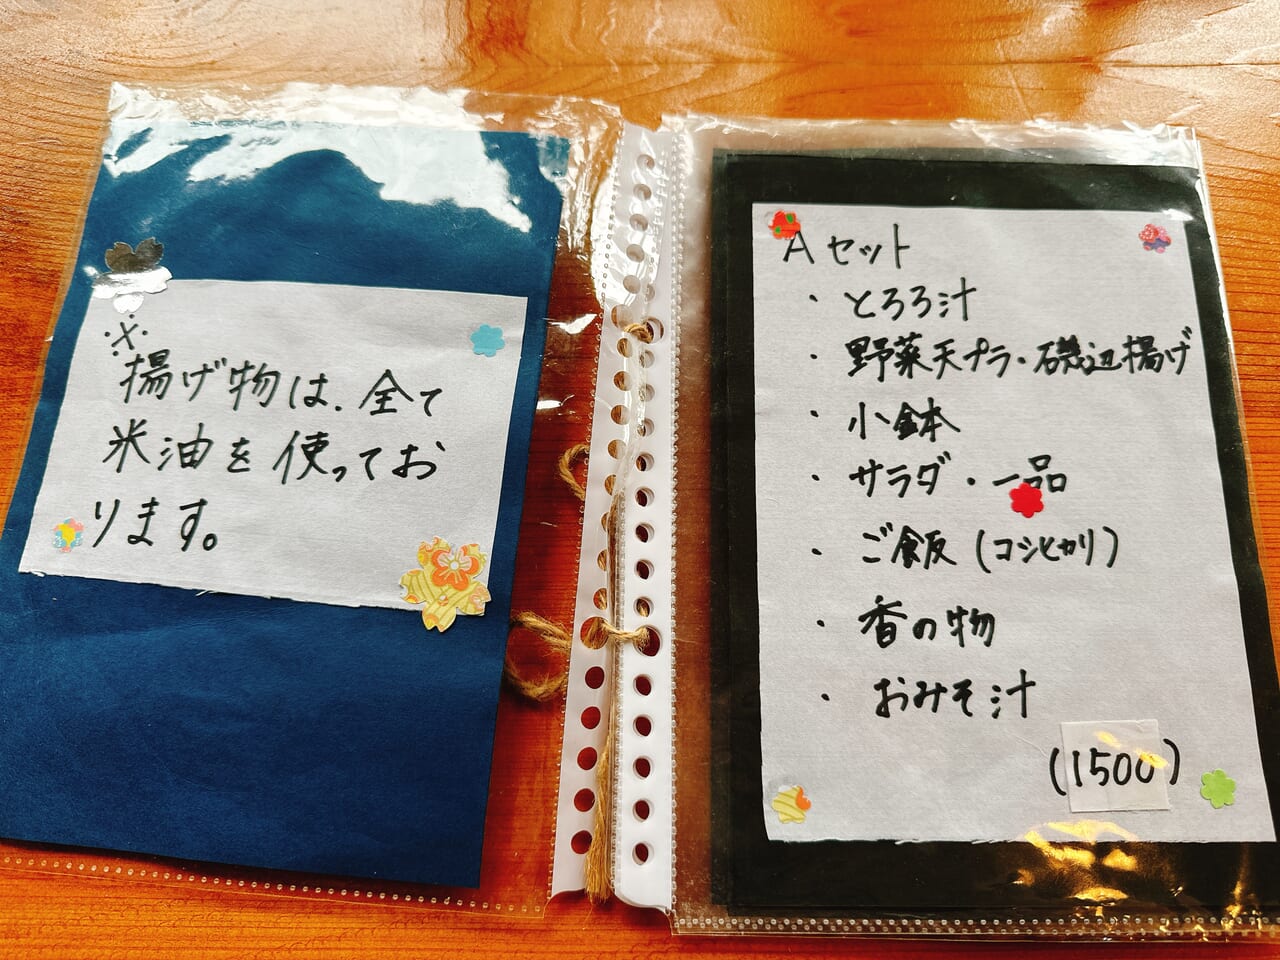 ※
揚げ物は、全て
米油を使ってお
ります。
Aセット
・とろろ汁
・野菜天プラ・磯辺揚げ
・小鉢
・サラダ・一品
・ご飯(コシヒカリ)
・香の物
・おみそ汁
(1500)